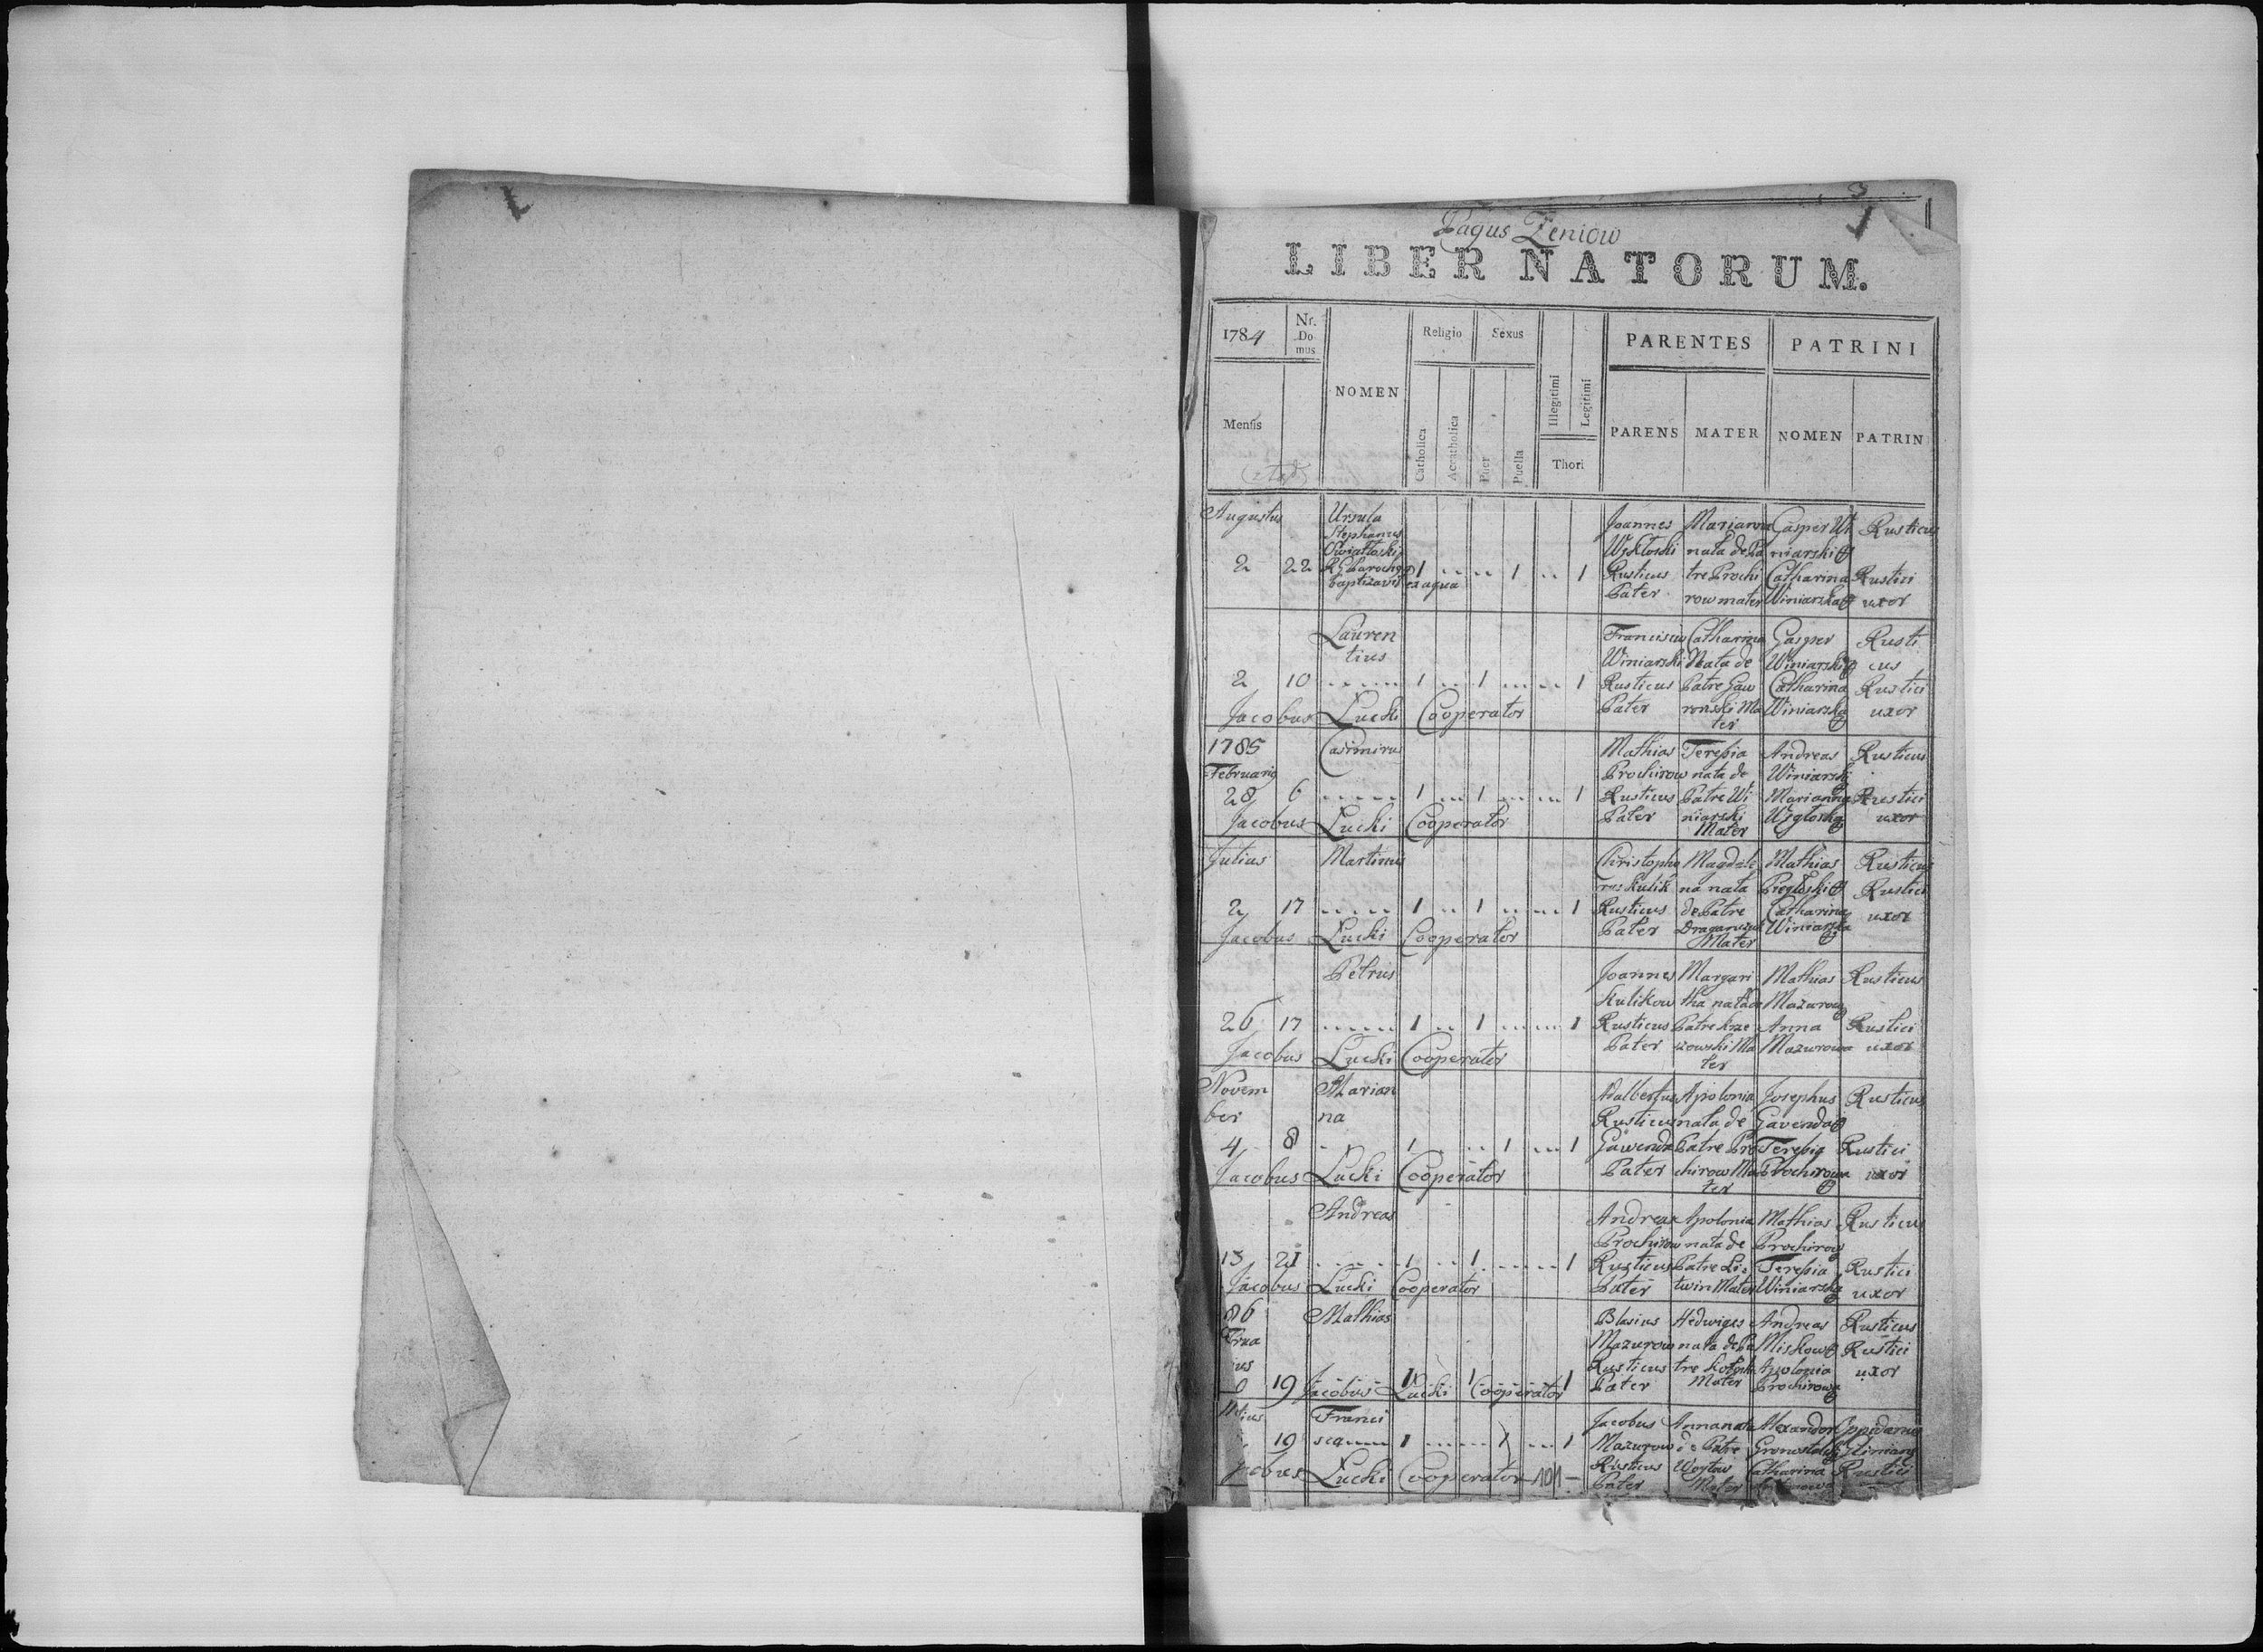 3
1
Pagus Zeniow
LIBER NATORUM.
1784
Nr. Do mus
NOMEN
Religio
Sexus
Illegitimi
Legitimi
PARENTES
PATRINI
Mensis
Catholica
Accatholica
Puer
Puella
Thori
PARENS
MATER
NOMEN
PATRIN
Augustus Ursula Joannes Marianna Gasper Wi Rusticus
Stephanus nata de Pa niarski
2 22 baptizavit ex aqua 1 .. .. 1 .. 1 Rusticus tre Prochi Catharina Rustici
Pater row mater Winiarska uxor
Lauren Franciscus Catharina Gasper Rusti
tius Winiarski Nata de Winiarski cus
2 10 ...... 1 ... 1 ... ... 1 Rusticus Patre Gaw Catharina Rustici
Jacobus Lucki Cooperator Pater ronski Ma Winiarska uxor
ter
1785 Casimirus Mathias Teresia Andreas Rusticus
Februarius Prochirow nata de Winiarski
28 6 ...... 1 ... 1 ... ... 1 Rusticus Patre Wi Marianna Rustici
Jacobus Lucki Cooperator Pater niarski uxor
Mater
Julius Martinus Christopho Magdale Mathias Rusticus
rus Kulik na nata Rustici
2 17 ...... 1 .. 1 ... ... 1 Rusticus de Patre Catharina uxor
Jacobus Lucki Cooperator Pater Winiarska
Mater
Petrus Joannes Margari Mathias Rusticus
Kulikow tha nata de Mazurow
26 17 ...... 1 .. 1 ... ... 1 Rusticus Patre Krze Anna Rustici
Jacobus Lucki Cooperator Pater zowski Ma Mazurowa uxor
ter
Novem Marian Adalbertus Apolonia Josephus Rusticus
ber na Rusticus nata de Gavenda
4 8 1 .. 1 ... 1 Gawenda Patre Pro Teresia Rustici
Jacobus Lucki Cooperator Pater chirow Ma Prochirowa uxor
ter
Andreas Andreas Apolonia Mathias Rusticus
Prochirow nata de Prochirow
13 21 ...... 1 .. 1 ...... 1 Rusticus Patre Li Teresia Rustici
Jacobus Lucki Cooperator Pater twin Mater Winiarska uxor
86 Mathias Blasius Hedwiges Andreas Rusticus
Mazurow nata de Pa Miskow Rustici
19 Jacobus Lucki Cooperator 1 1 1 Rusticus tre Apolonia uxor
Pater Mater Prochirowa
Franci Jacobus Anna nata Alexander Oppidanus
19 sca 1 ...... 1 ... 1 Mazurow de Patre
Lucki Cooperator 101 Rusticus Woytow Catharina Rustici
Pater Mater